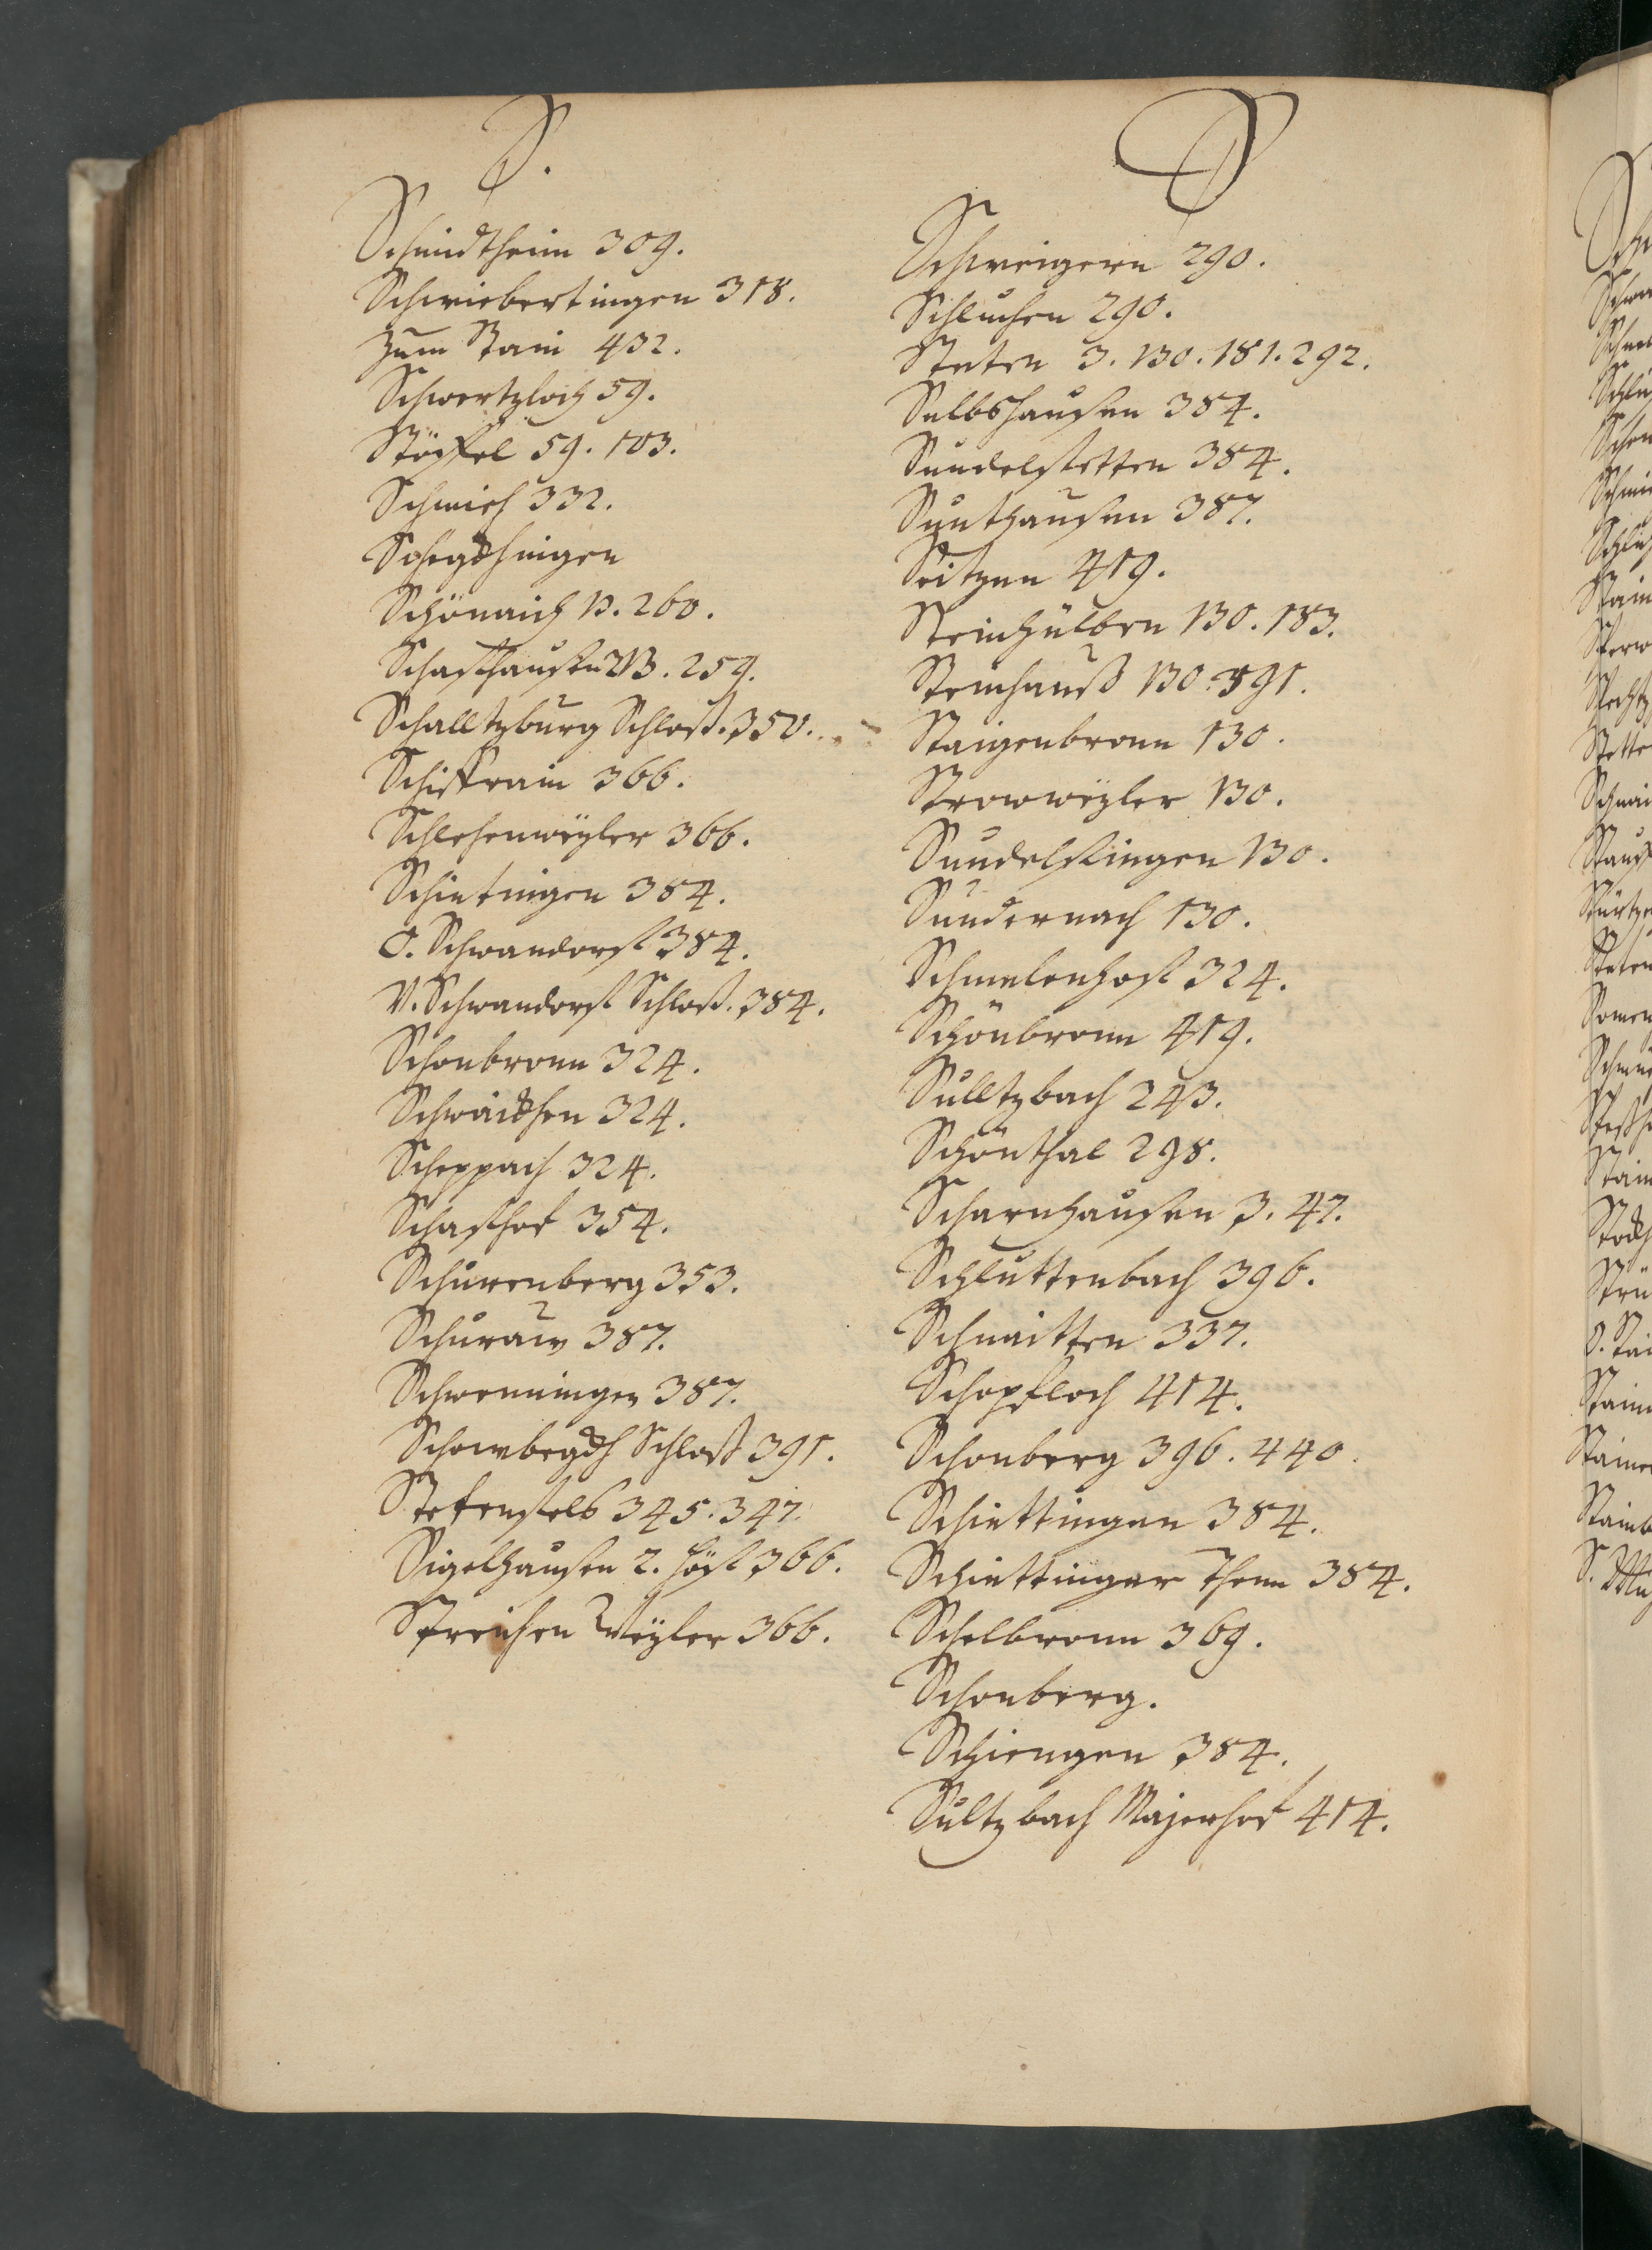 S.
Schmidtheim 309.
Schwiebertingen 318.
Zum Stain 432.
Schwertzloch 59.
Stöffel 59. 103.
Schmieh 332.
Schegkhingen
Schönaich 13. 260.
Schaffhausen 13. 259.
Schalltzburg Schloß. 350.
Schiffrain 366.
Schlehenweyler 366.
Schietingen 384.
O. Schwandorff 384.
V. Schwandorff Schloß. 384.
Schonbronn 324.
Schwaickhen 324.
Scheppach 324.
Schaffhof 354.
Schurenberg 353.
Schuraw 387.
Schwenningen 387.
Schowbegkh Schloß 391.
Stetenfels 345. 347.
Sigelhausen 2. Höff 366.
Streichen Weyler 366.
S
Schweigern 290.
Schluchen 290.
Steten 3. 130. 181. 292.
Sulbshausen 384.
Sundelstetten 384.
Sunthausen 387.
Seitzen 419.
Steinhülben 130. 183.
Steinhauß 130. 391.
Staigenbronn 130.
Strowweyler 130.
Sundelfingen 130.
Sundernach 130.
Schmelenhoff 324.
Schönbronn 419.
Sulltzbach 243.
Schönthal 298.
Scharnhausen 3. 47.
Schluttenbach 396.
Schnaitten 337.
Schopfloch 414.
Schonberg 396. 440.
Schiettingen 384.
Schiettinger Thenn 384.
Schelbronn 369.
Schonberg.
Schiengen 384.
Sultzbach Majerhof 414.